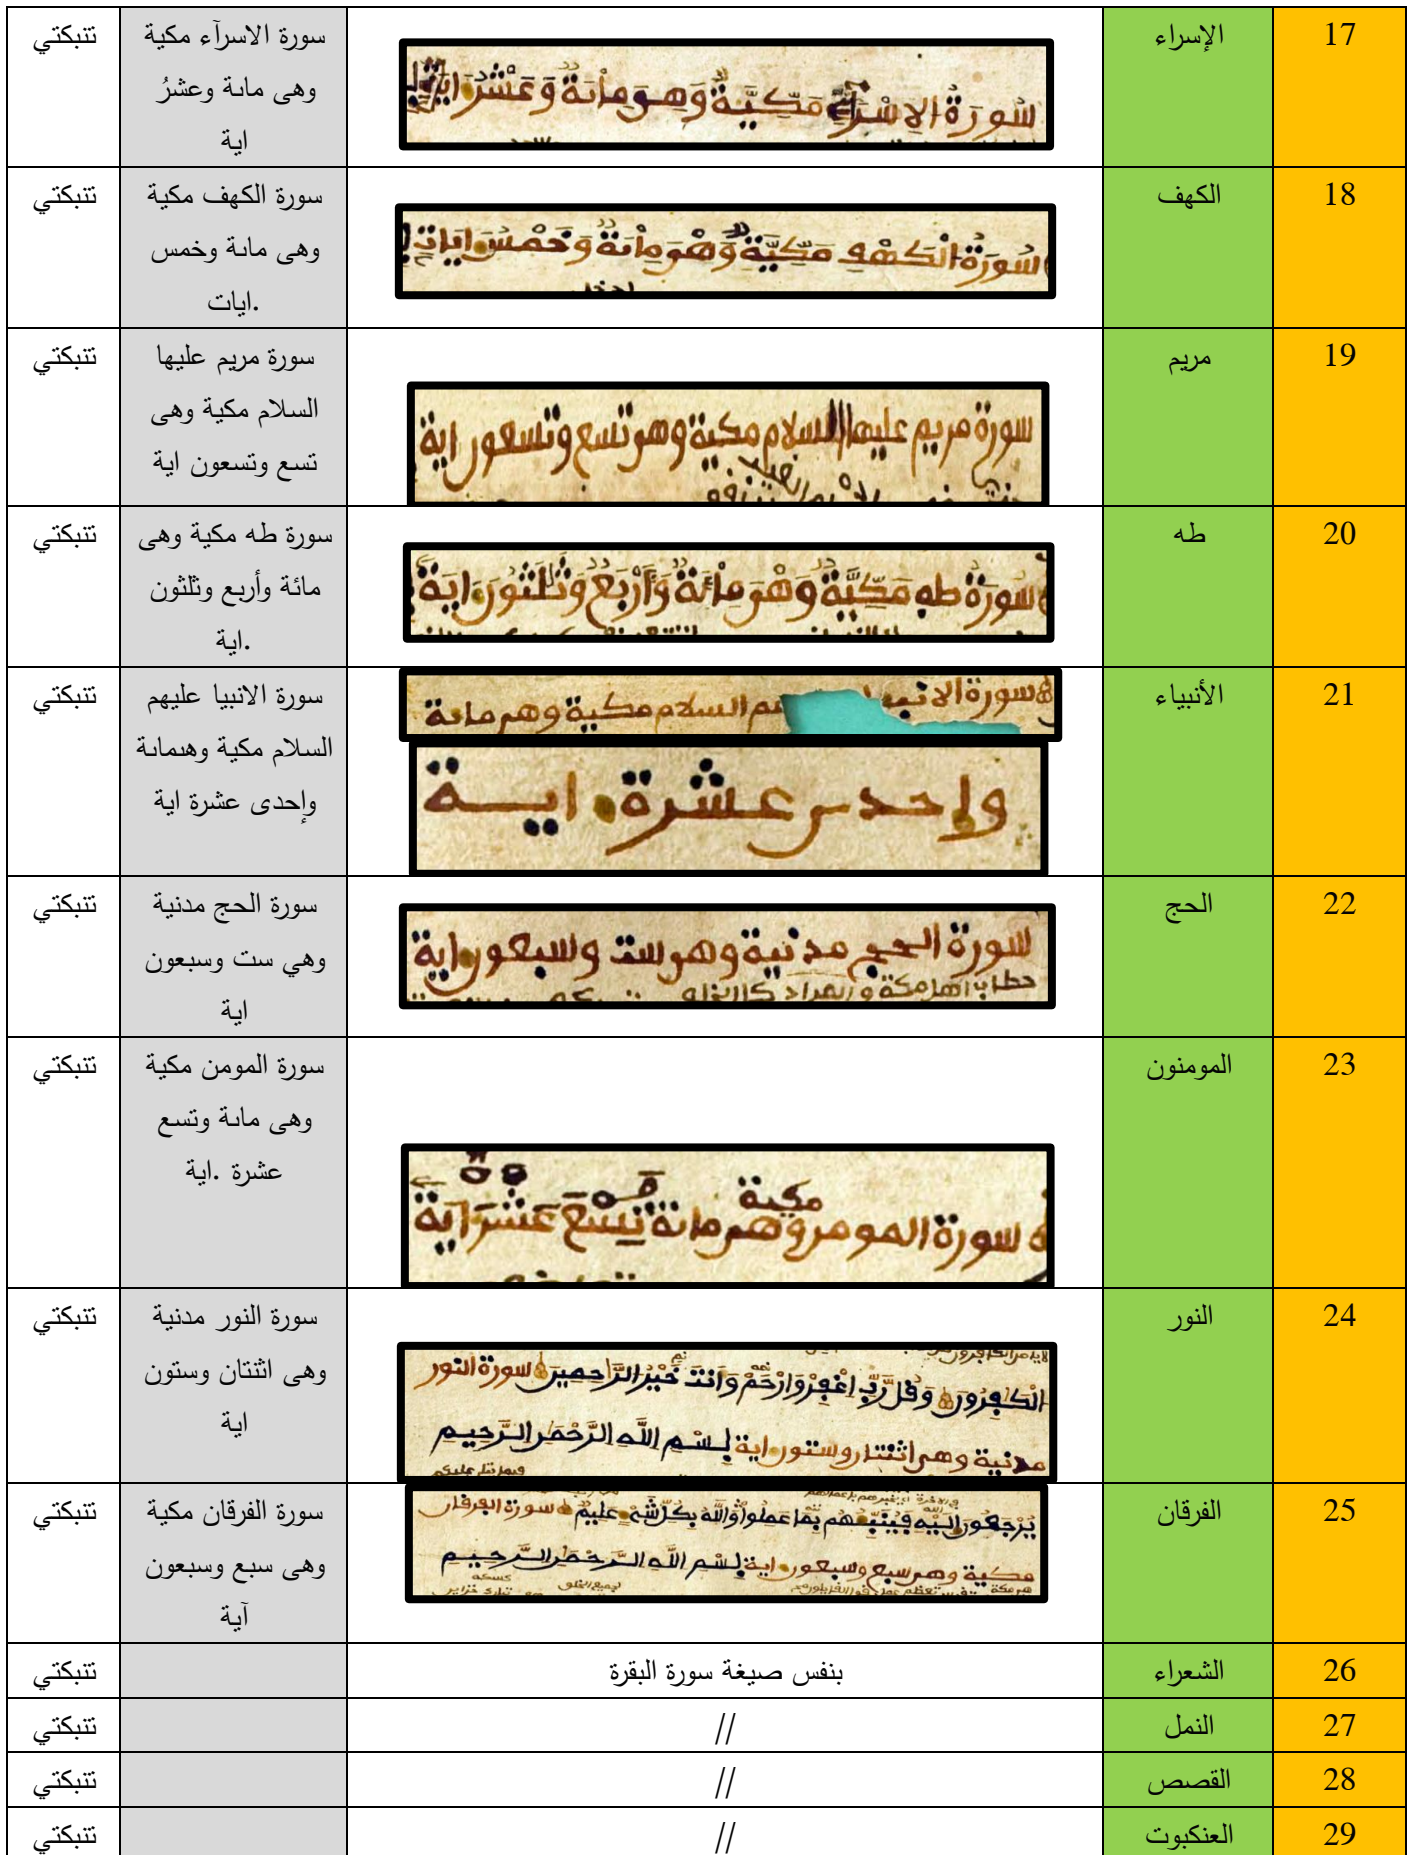 17
الإسراء
سُورَةُ الِاسْرَآءِ مَكِّيَّةٌ وَهِىَ مِائَةٌ وَعَشْرُ ايَةً
سورة الاسرآء مكية
وهى مائة وعشرُ
اية
تنبكتي
18
الكهف
سُورَةُ الكَهْفِ مَكِّيَّةٌ وَهْىَ مِائَةٌ وَخَمْسُ ايَاتٍ
سورة الكهف مكية
وهى مائة وخمس
ايات.
تنبكتي
19
مريم
سورة مريم عليها السلام مكية وهى تسع وتسعون اية
سورة مريم عليها
السلام مكية وهى
تسع وتسعون اية
تنبكتي
20
طه
سُورَةُ طه مَكِّيَّةٌ وَهْىَ مِائَةٌ وَأَرْبَعٌ وَثَلَثُونَ ايَةً
سورة طه مكية وهى
مائة وأربع وثلثون
اية.
تنبكتي
21
الأنبياء
سورة الانبيا هم السلام مكية وهى مائة
وإحدى عشرة اية
سورة الانبيا عليهم
السلام مكية وهىمائة
وإحدى عشرة اية
تنبكتي
22
الحج
سورة الحج مدنية وهى ست وسبعون اية
سورة الحج مدنية
وهي ست وسبعون
اية
تنبكتي
23
المومنون
مكية
سورة المومن وهى مائة تِسْعَ عَشْرَ ايَةً
سورة المومن مكية
وهى مائة وتسع
عشرة .اية
تنبكتي
24
النور
الكَفِرُونَ وَقُل رَّبِّ اغْفِرْ وَارْحَمْ وَأَنتَ خَيْرُ الرَّاحِمِينَ سورة النور
مدنية وهى اثنتان وستون اية بِسْمِ اللَّهِ الرَّحْمَنِ الرَّحِيمِ
سورة النور مدنية
وهى اثنتان وستون
اية
تنبكتي
25
الفرقان
يُرْجَعُونَ إِلَيْهِ فَيُنَبِّئُهُم بِمَا عَمِلُوا وَاللَّهُ بِكُلِّ شَىْءٍ عَلِيمٌ سورة الفرقان
مكية وهى سبع وسبعون اية بِسْمِ اللَّهِ الرَّحْمَنِ الرَّحِيمِ
سورة الفرقان مكية
وهى سبع وسبعون
آية
تنبكتي
26
الشعراء
بنفس صيغة سورة البقرة
تنبكتي
27
النمل
//
تنبكتي
28
القصص
//
تنبكتي
29
العنكبوت
//
تنبكتي